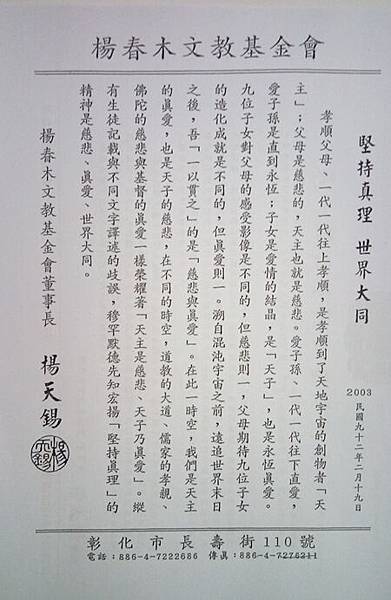 楊春木文教基金會
堅持真理 世界大同
2003 民國九十二年二月十九日
孝順父母、一代一代往上孝順,是孝順到了天地宇宙的創物者「天
主」;父母是慈悲的,天主也就是慈悲。愛子孫、一代一代往下直愛,
愛子孫是直到永恆;子女是愛情的結晶,是「天子」,也是永恆眞愛。
九位子女對父母的感受影像是不同的,但慈悲則一,父母期待九位子女
的造化成就是不同的,但眞愛則一。溯自混沌宇宙之前,遠追世界末日
之後,吾「一以貫之」的是「慈悲與眞愛」。在此一時空,我們是天主
的眞愛,也是天子的慈悲,在不同的時空,道教的大道、儒家的孝親、
佛陀的慈悲與基督的眞愛一樣榮耀著「天主是慈悲、天子乃眞愛」。縱
有生徒記載與不同文字譯述的歧誤,穆罕默德先知宏揚「堅持真理」的
精神是慈悲、眞愛、世界大同。
楊春木文教基金會董事長 楊天錫
楊天錫
彰化市長壽街110號
電話:886-4-7222686 傳眞:886-4-7276211